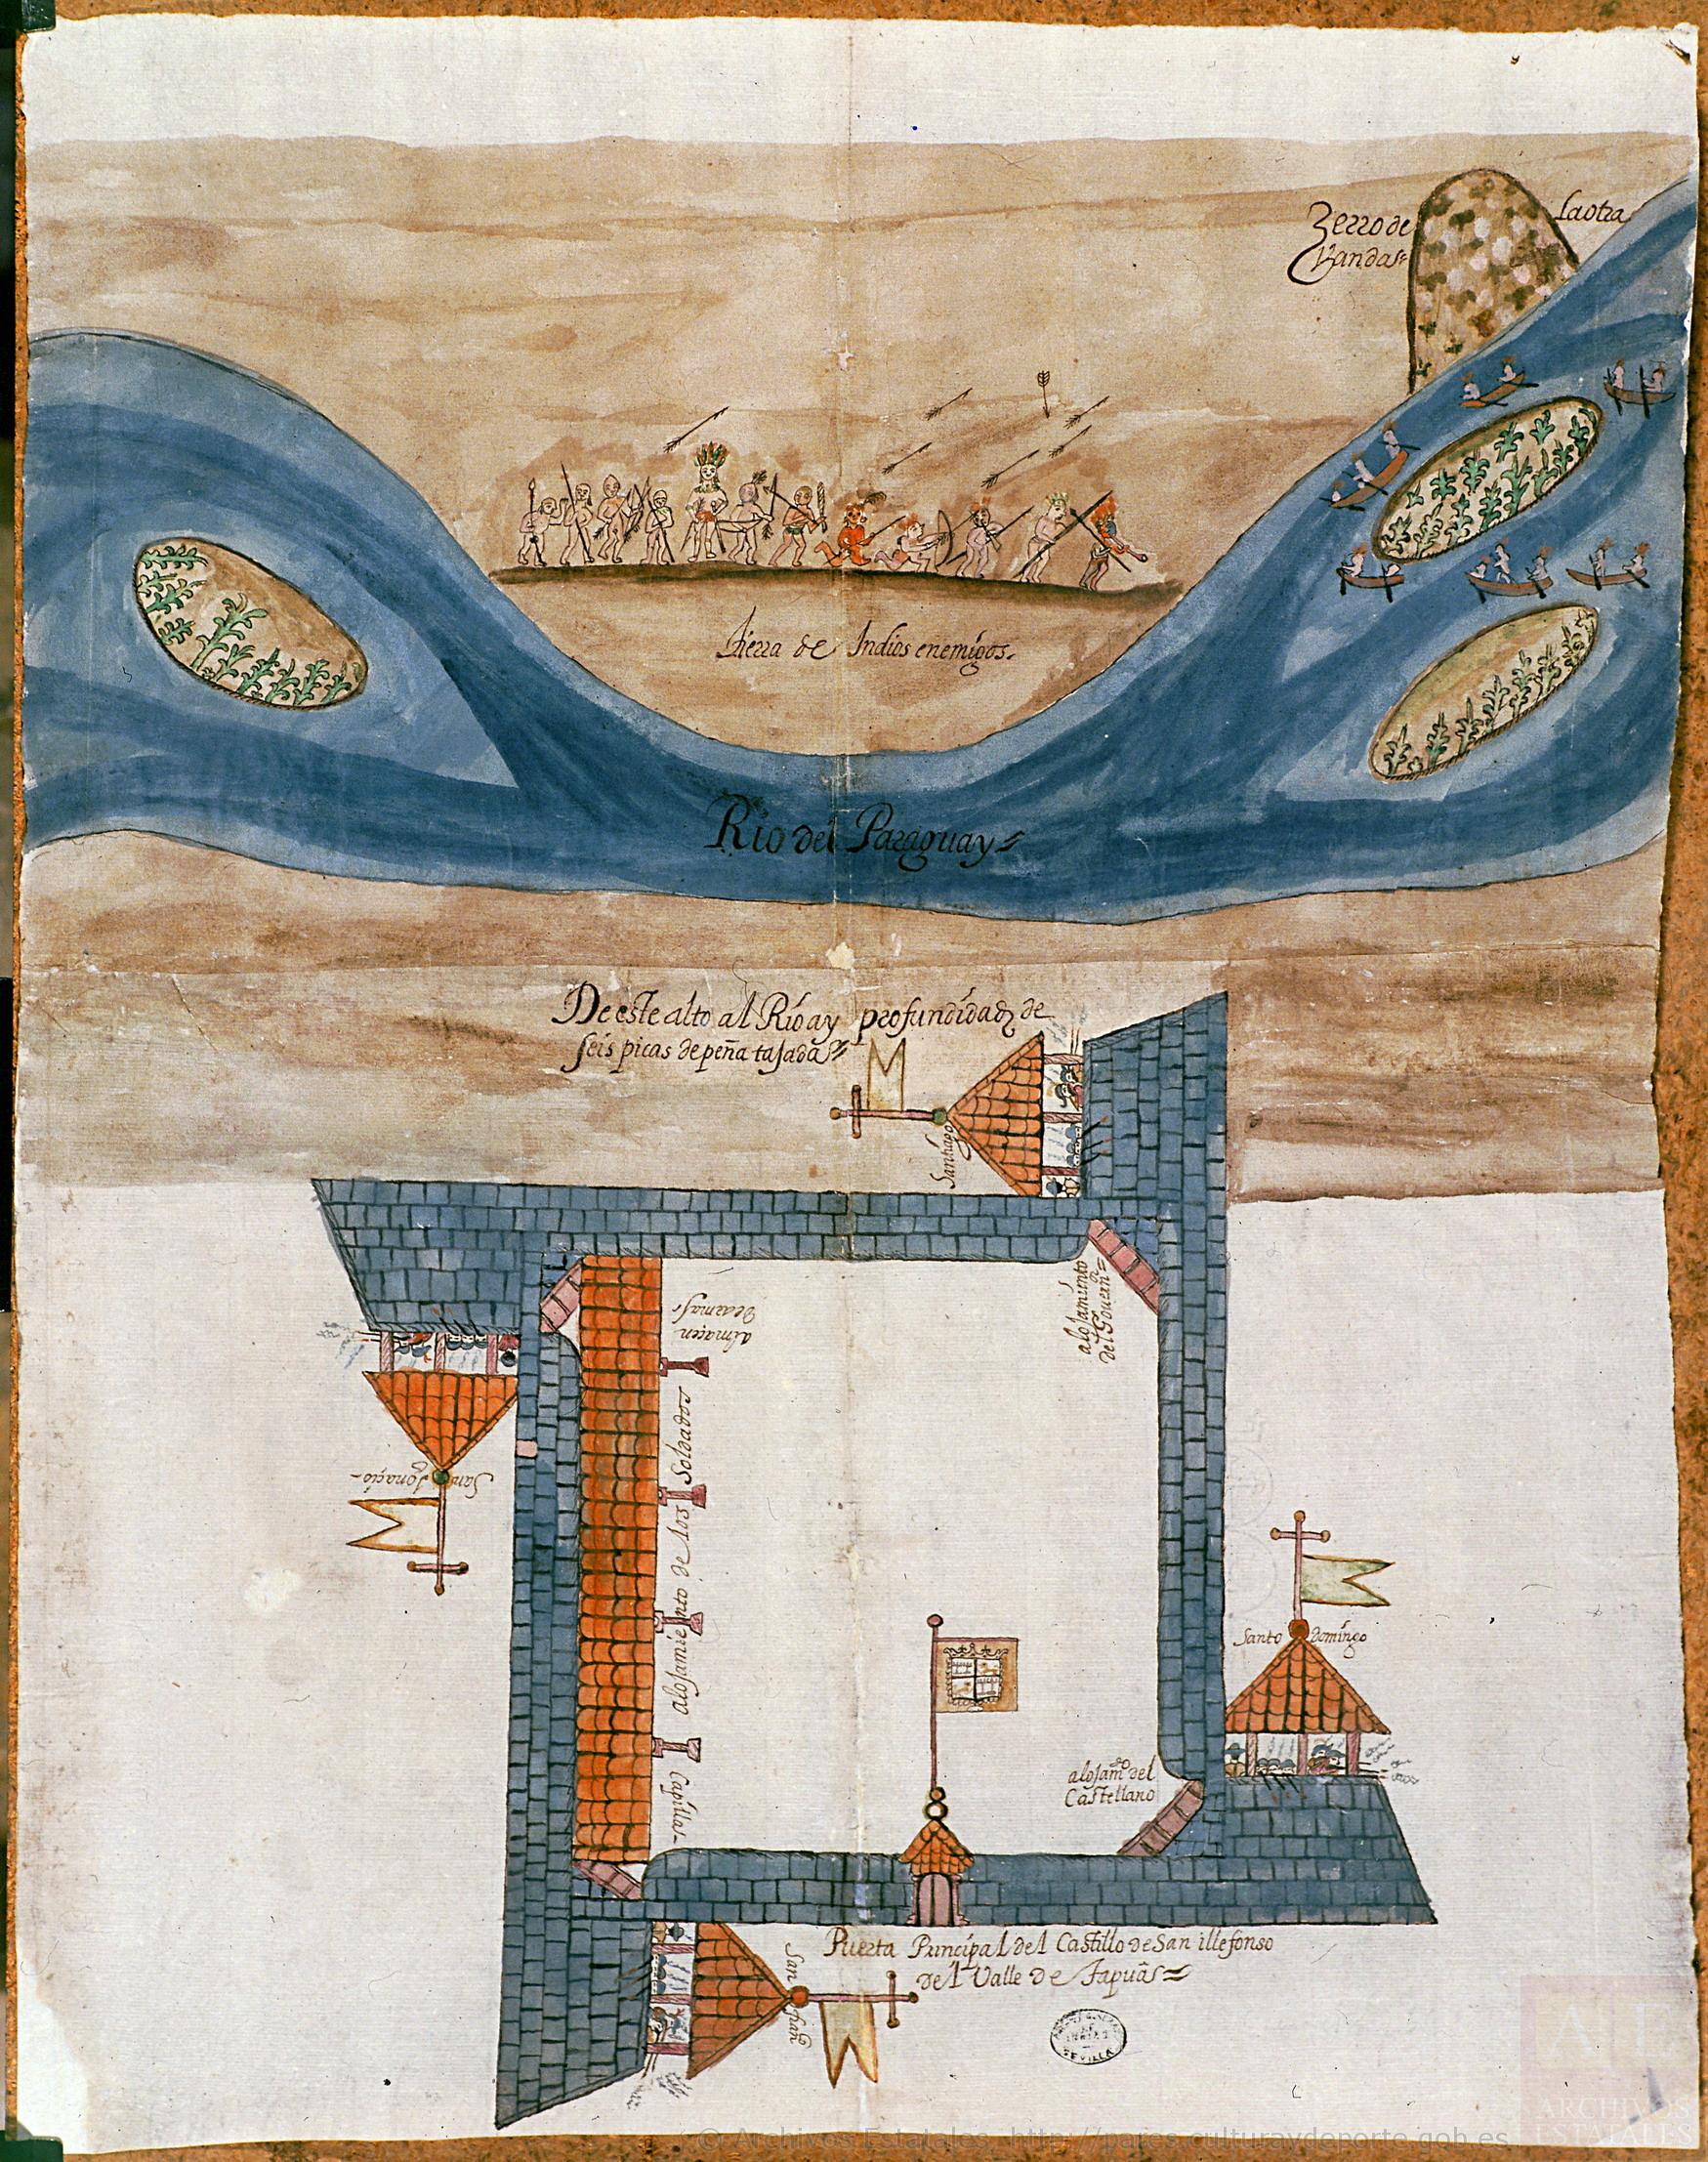 Zerro de
Vandas=
la otra
Tierra de Indios enemigos.
Rio del Paraguay=
De este alto al Rio ay profundidad de
seis picas de peña tajada=
Santiago
alojamiento
del Gouern.ᵒʳ=
almaçen
de armas
San Ignaçio
alojamiento de los Soldados
Capilla
Santo domingo
alojam.ᵗᵒ del
Castellano
Puerta Principal del Castillo de San illefonso
del Valle de Tapuâs=
San Juan
SEVILLA
© Archivos Estatales, http://pares.culturaydeporte.gob.es
ARCHIVOS
ESTATALES